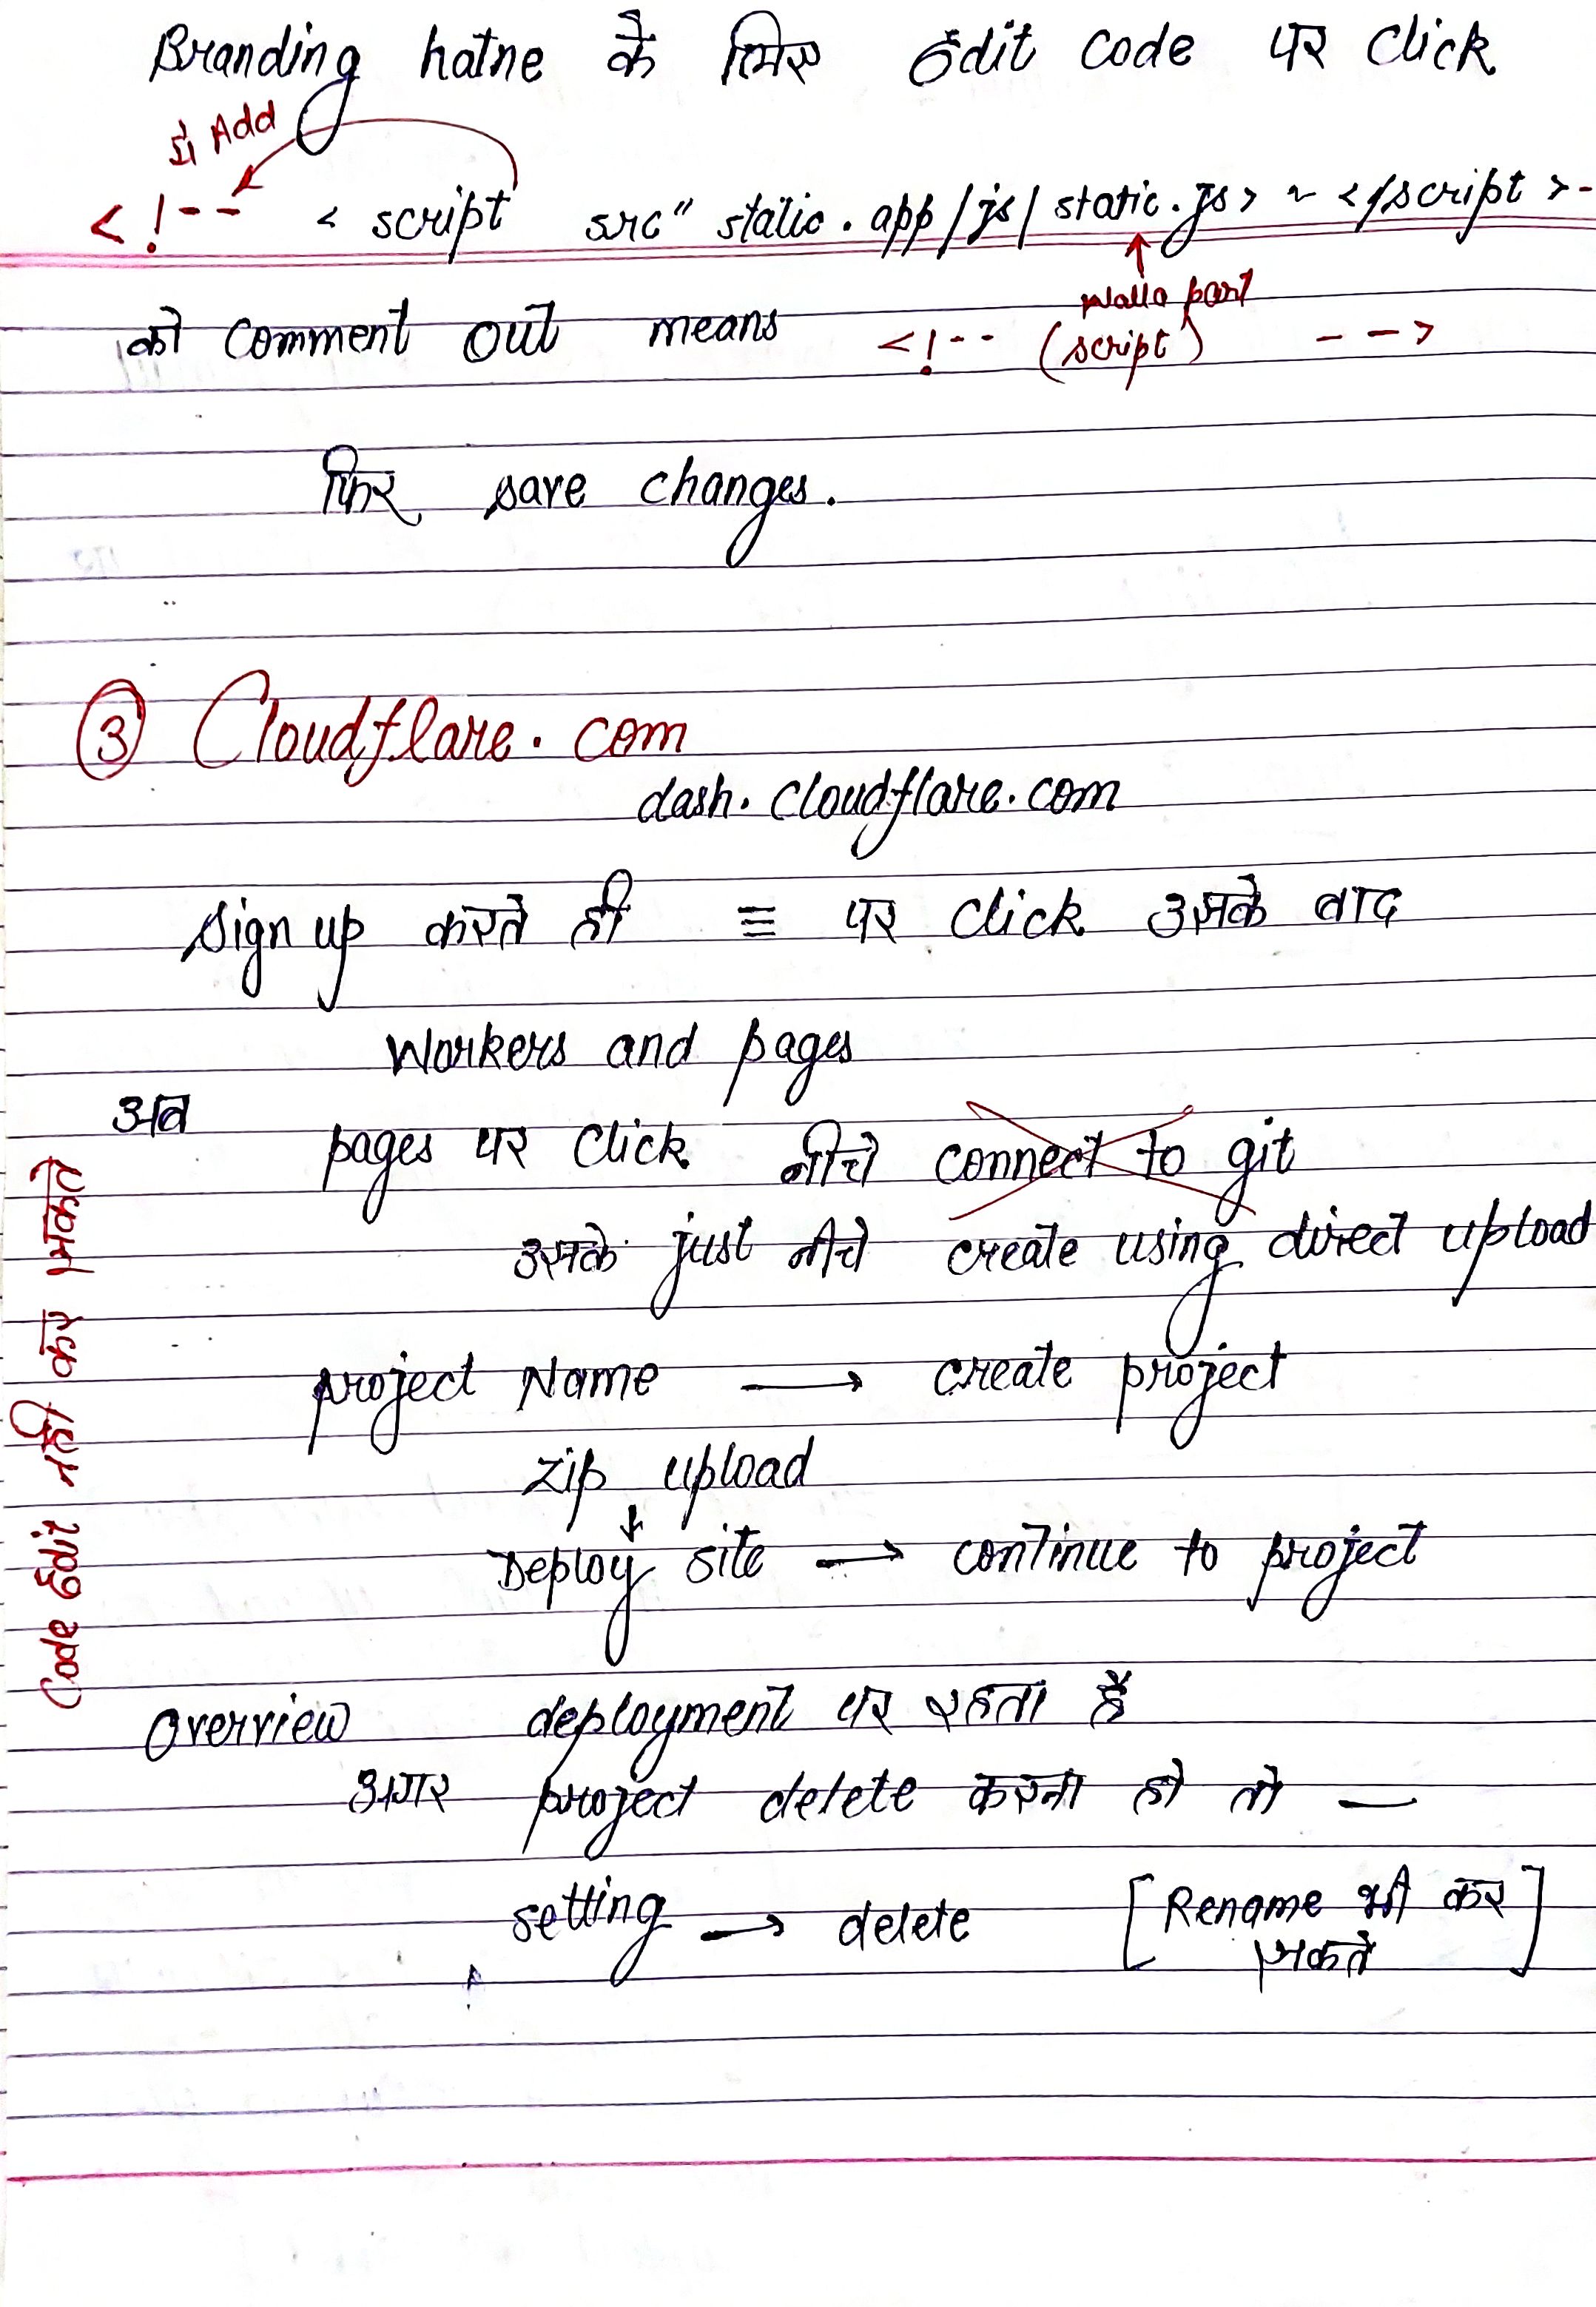 Branding hatne के लिए Edit code पर click
में Add
<!-- < script src" static.app/js/static.js> ~ </script>-
walla part
को comment out means <!-- (script) -->
फिर save changes.
③ Cloudflare.com
dash.cloudflare.com
Sign up करते ही ≡ पर click उसके बाद
Workers and pages
अब
pages पर click नीचे connect to git
उसके just नीचे create using direct upload
project Name → create project
zip upload
↓
Deploy site → continue to project
Code Edit नही कर सकते
Overview deployment पर रहता है
अगर project delete करना हो तो —
setting → delete [Rename भी कर
सकते]